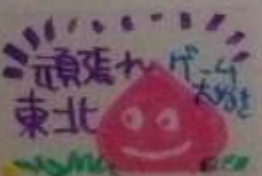 頑張れ
東北
ゲーム
大好き